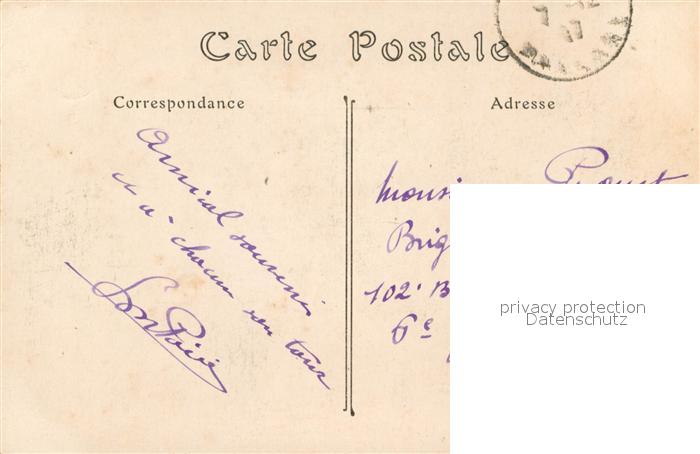 Carte Postale
7 - 12
17
Correspondance
Adresse
Amical souvenir
" à chacun son tour
Monsi
Brig
102e B
6e
privacy protection
Datenschutz